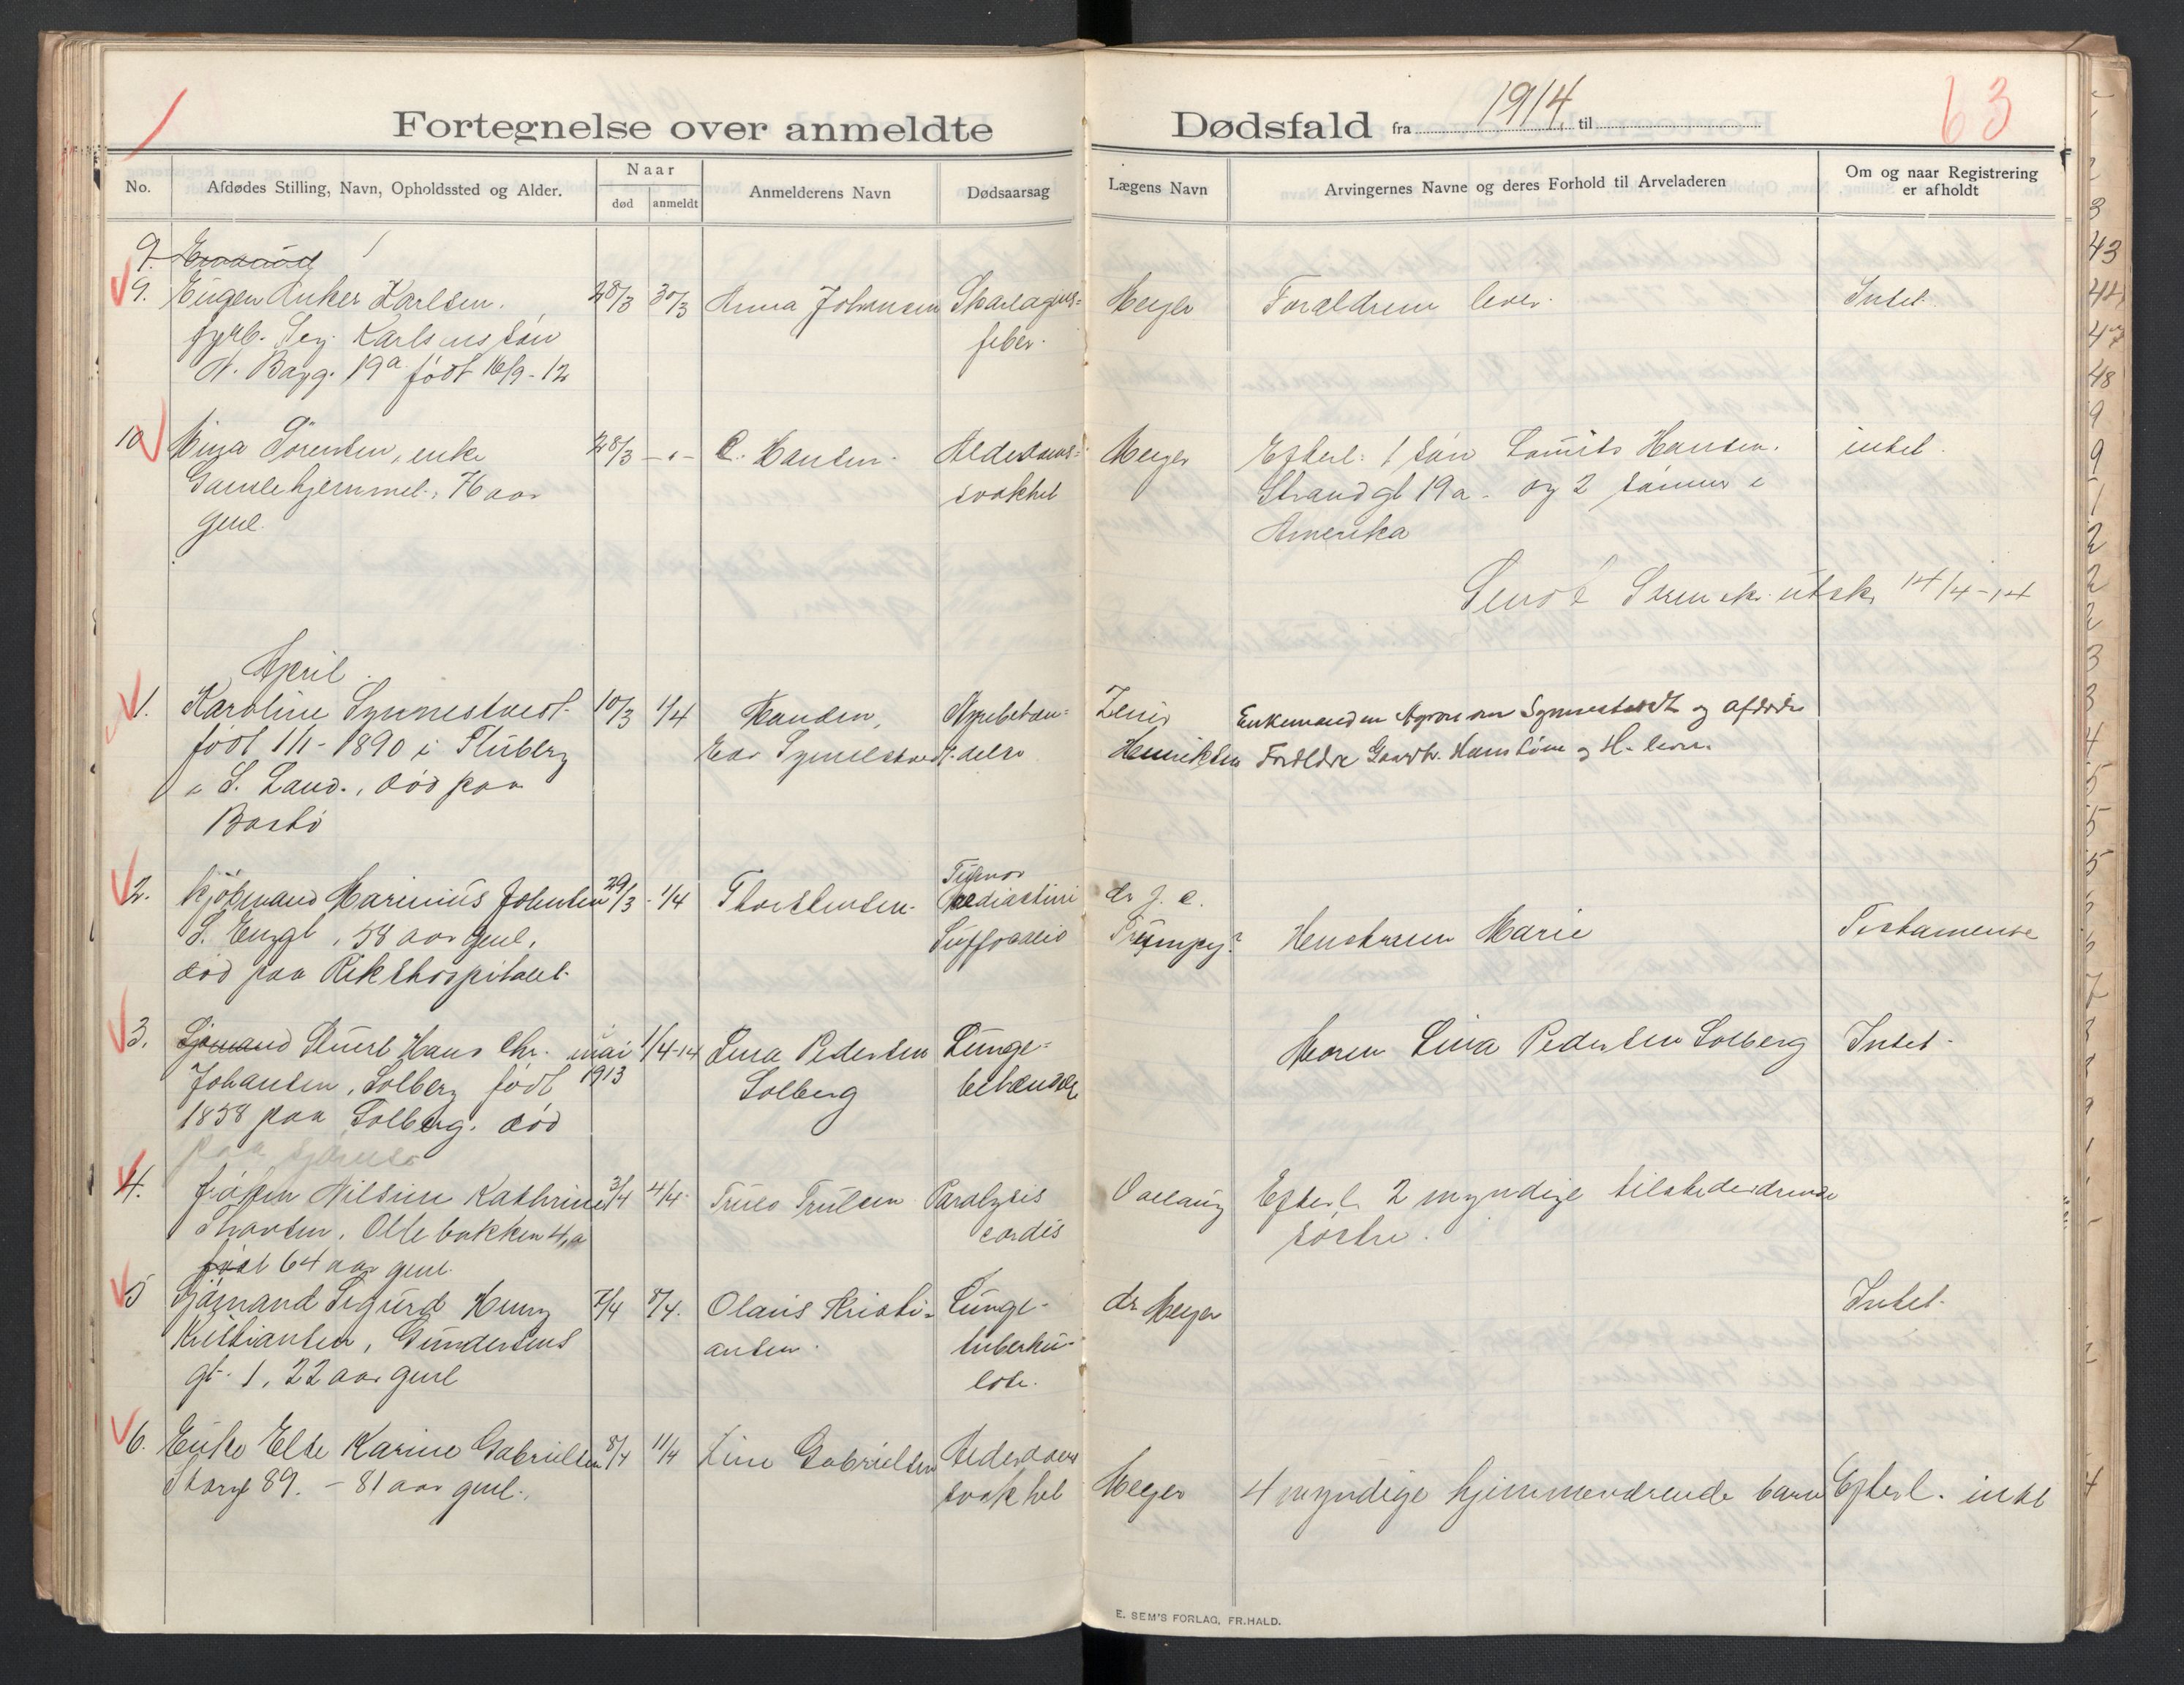 Fortegnelse over anmeldte Dødsfald fra 1914 til
63
No.
Afdødes Stilling, Navn, Opholdssted og Alder.
Naar
død
anmeldt
Anmelderens Navn
Dødsaarsag
Lægens Navn
Arvingernes Navne og deres Forhold til Arveladeren
Om og naar Registrering
er afholdt
9.
9. Eugen Anker Karlsen. 28/3 30/3 Anna Johansen Skarlagens= Meyer Forældrene lever. Intet.
fyrb. Karlsens søn feber.
N. Bagg. 19a født 16/9-12
10 Mina Sørensen, enke 28/3 -"- C. Hansen. Alderdoms= Meyer Efterl: 1 søn Hansen. intet.
Gamlehjemmet, 76 aar svakhet Strandgt 19a. og 2 sønner i
gml. Amerika
Sendt utsk. 14/4-14
April
1. Karoline Synnestvedt 10/3 1/4 Manden, Nyrebetæn= Enkemanden Agronom Synnestvedt og afdøde
født 1/1-1890 i Fluberg Synnestvedt delse Henriksen Forældre Gaardbr.
i S. Land., død paa
Bastø
2. Kjøbmand Marinius Johnsen 29/3 1/4 Thorstensen. Tumor dr J. C.
S. Enggt, 58 aar gml, Mediastini Trumpy? Hustruen Marie Testamente
død paa Rikshospitalet. Suffocatio
3. Sjømand Stuert Hans Chr. mai 1/4-14 Lina Pedersen Lunge= Moren Lina Pedersen Solberg Intet.
Johansen, Solberg født 1913 Solberg betændelse
1858 paa Solberg. død
paa sjøreise
4. frøken Nilsine Kathrine 3/4 4/4. Truls Trulsen Paralysis Efterl. 2 myndige tilstedeværende
Thorsen, Ollebakken 4a cordis søstre.
født 64 aar gml.
5 Sjømand Sigurd Henry 7/4 8/4. Olaus Kristi= Lunge- dr Meyer Intet.
Kristiansen, Gundersens ansen. tuberku-
gt. 1, 22 aar gml lose.
6. Enke Else Karine Gabrielsen 8/4 11/4 Line Gabrielsen Alderdoms
Storg 89. - 81 aar gml. svakhet Meyer 4 myndige hjemmeværende barn Efterl. intet
E. SEM'S FORLAG, FR.HALD.